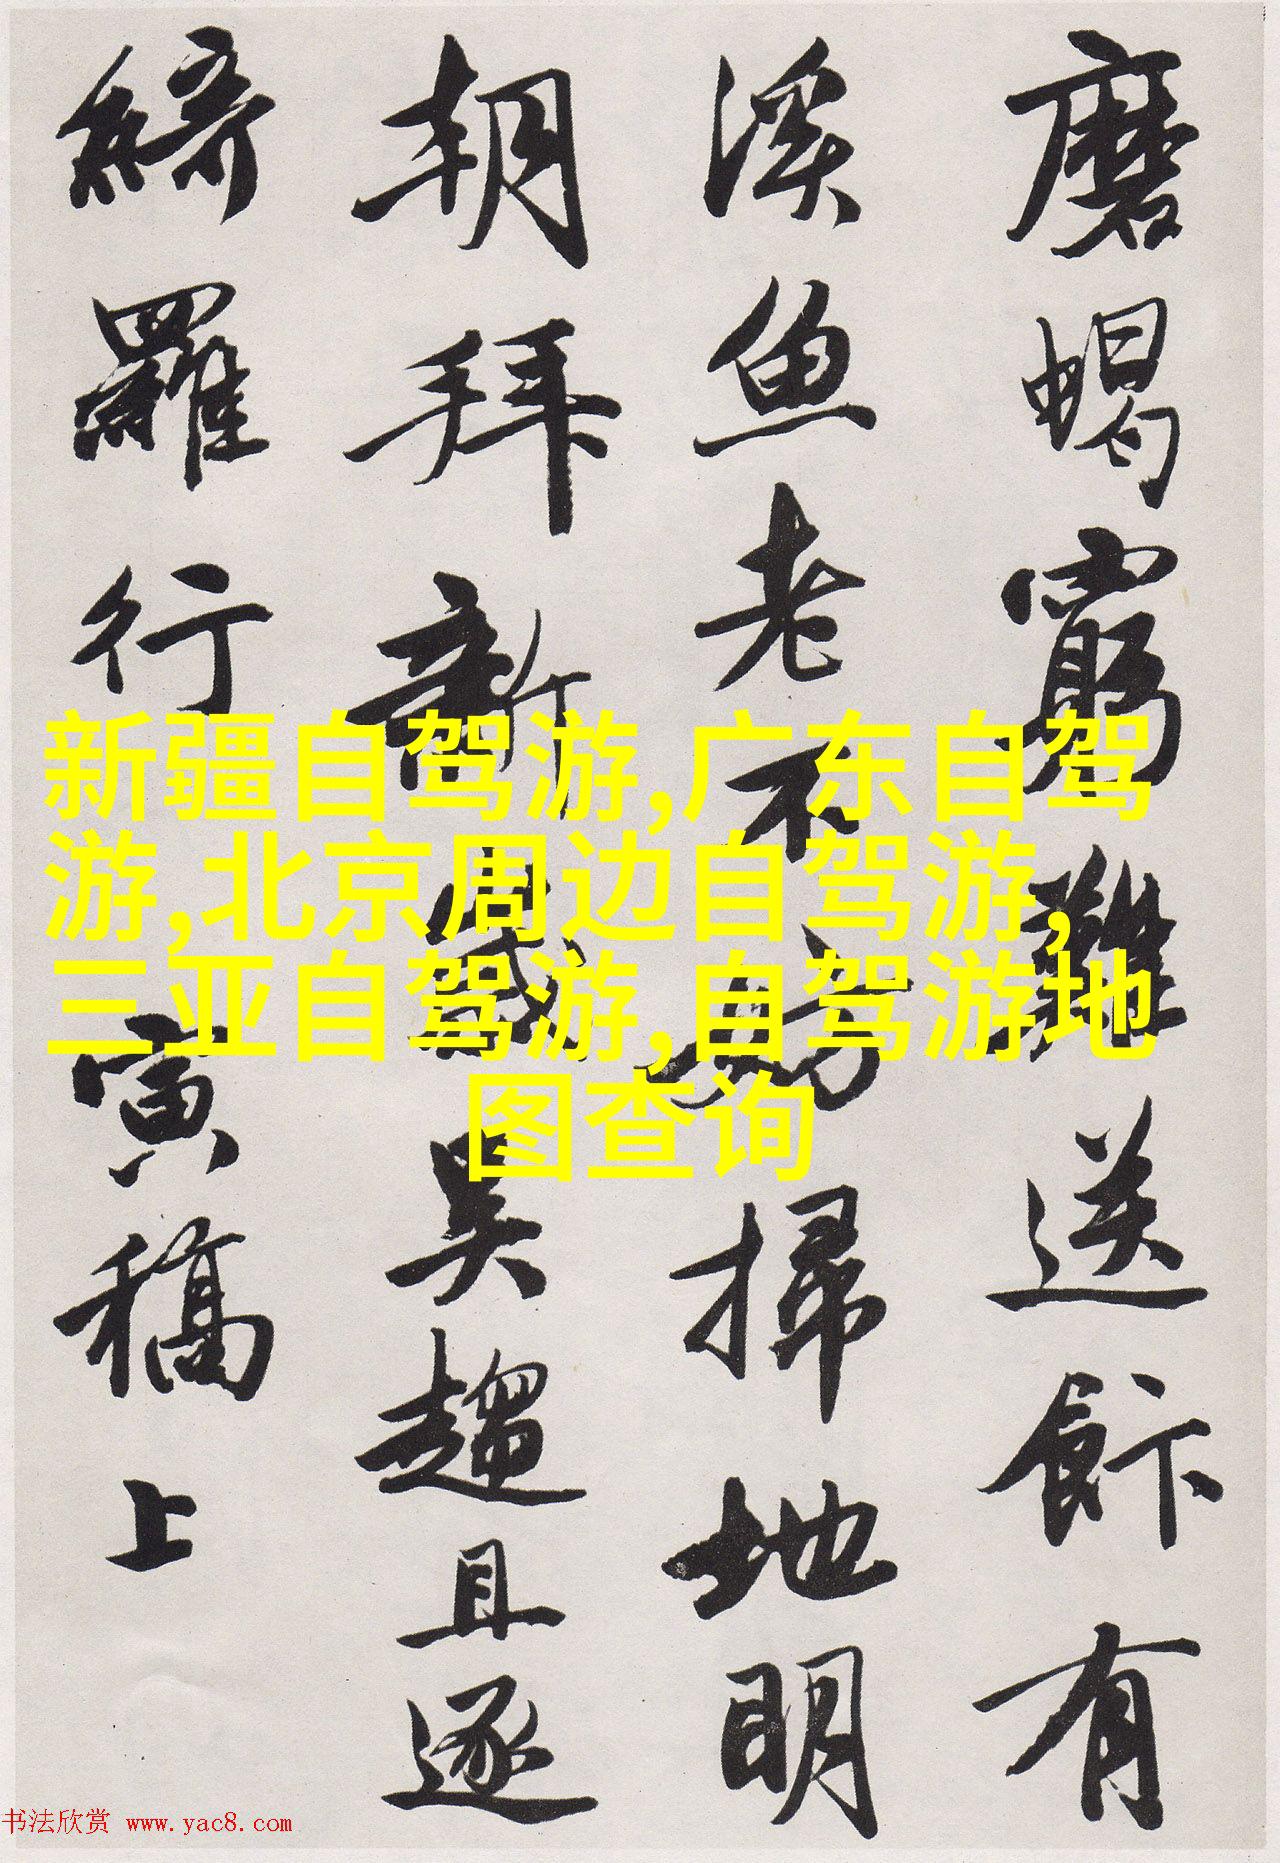 磨蝎窮難送餅有
溪魚老不妨掃地明
朝拜新歲吳趨且逐
綺羅行寅稿上
新疆自驾游,广东自驾
游,北京周边自驾游,
三亚自驾游,自驾游地
图查询
书法欣赏 www.yac8.com